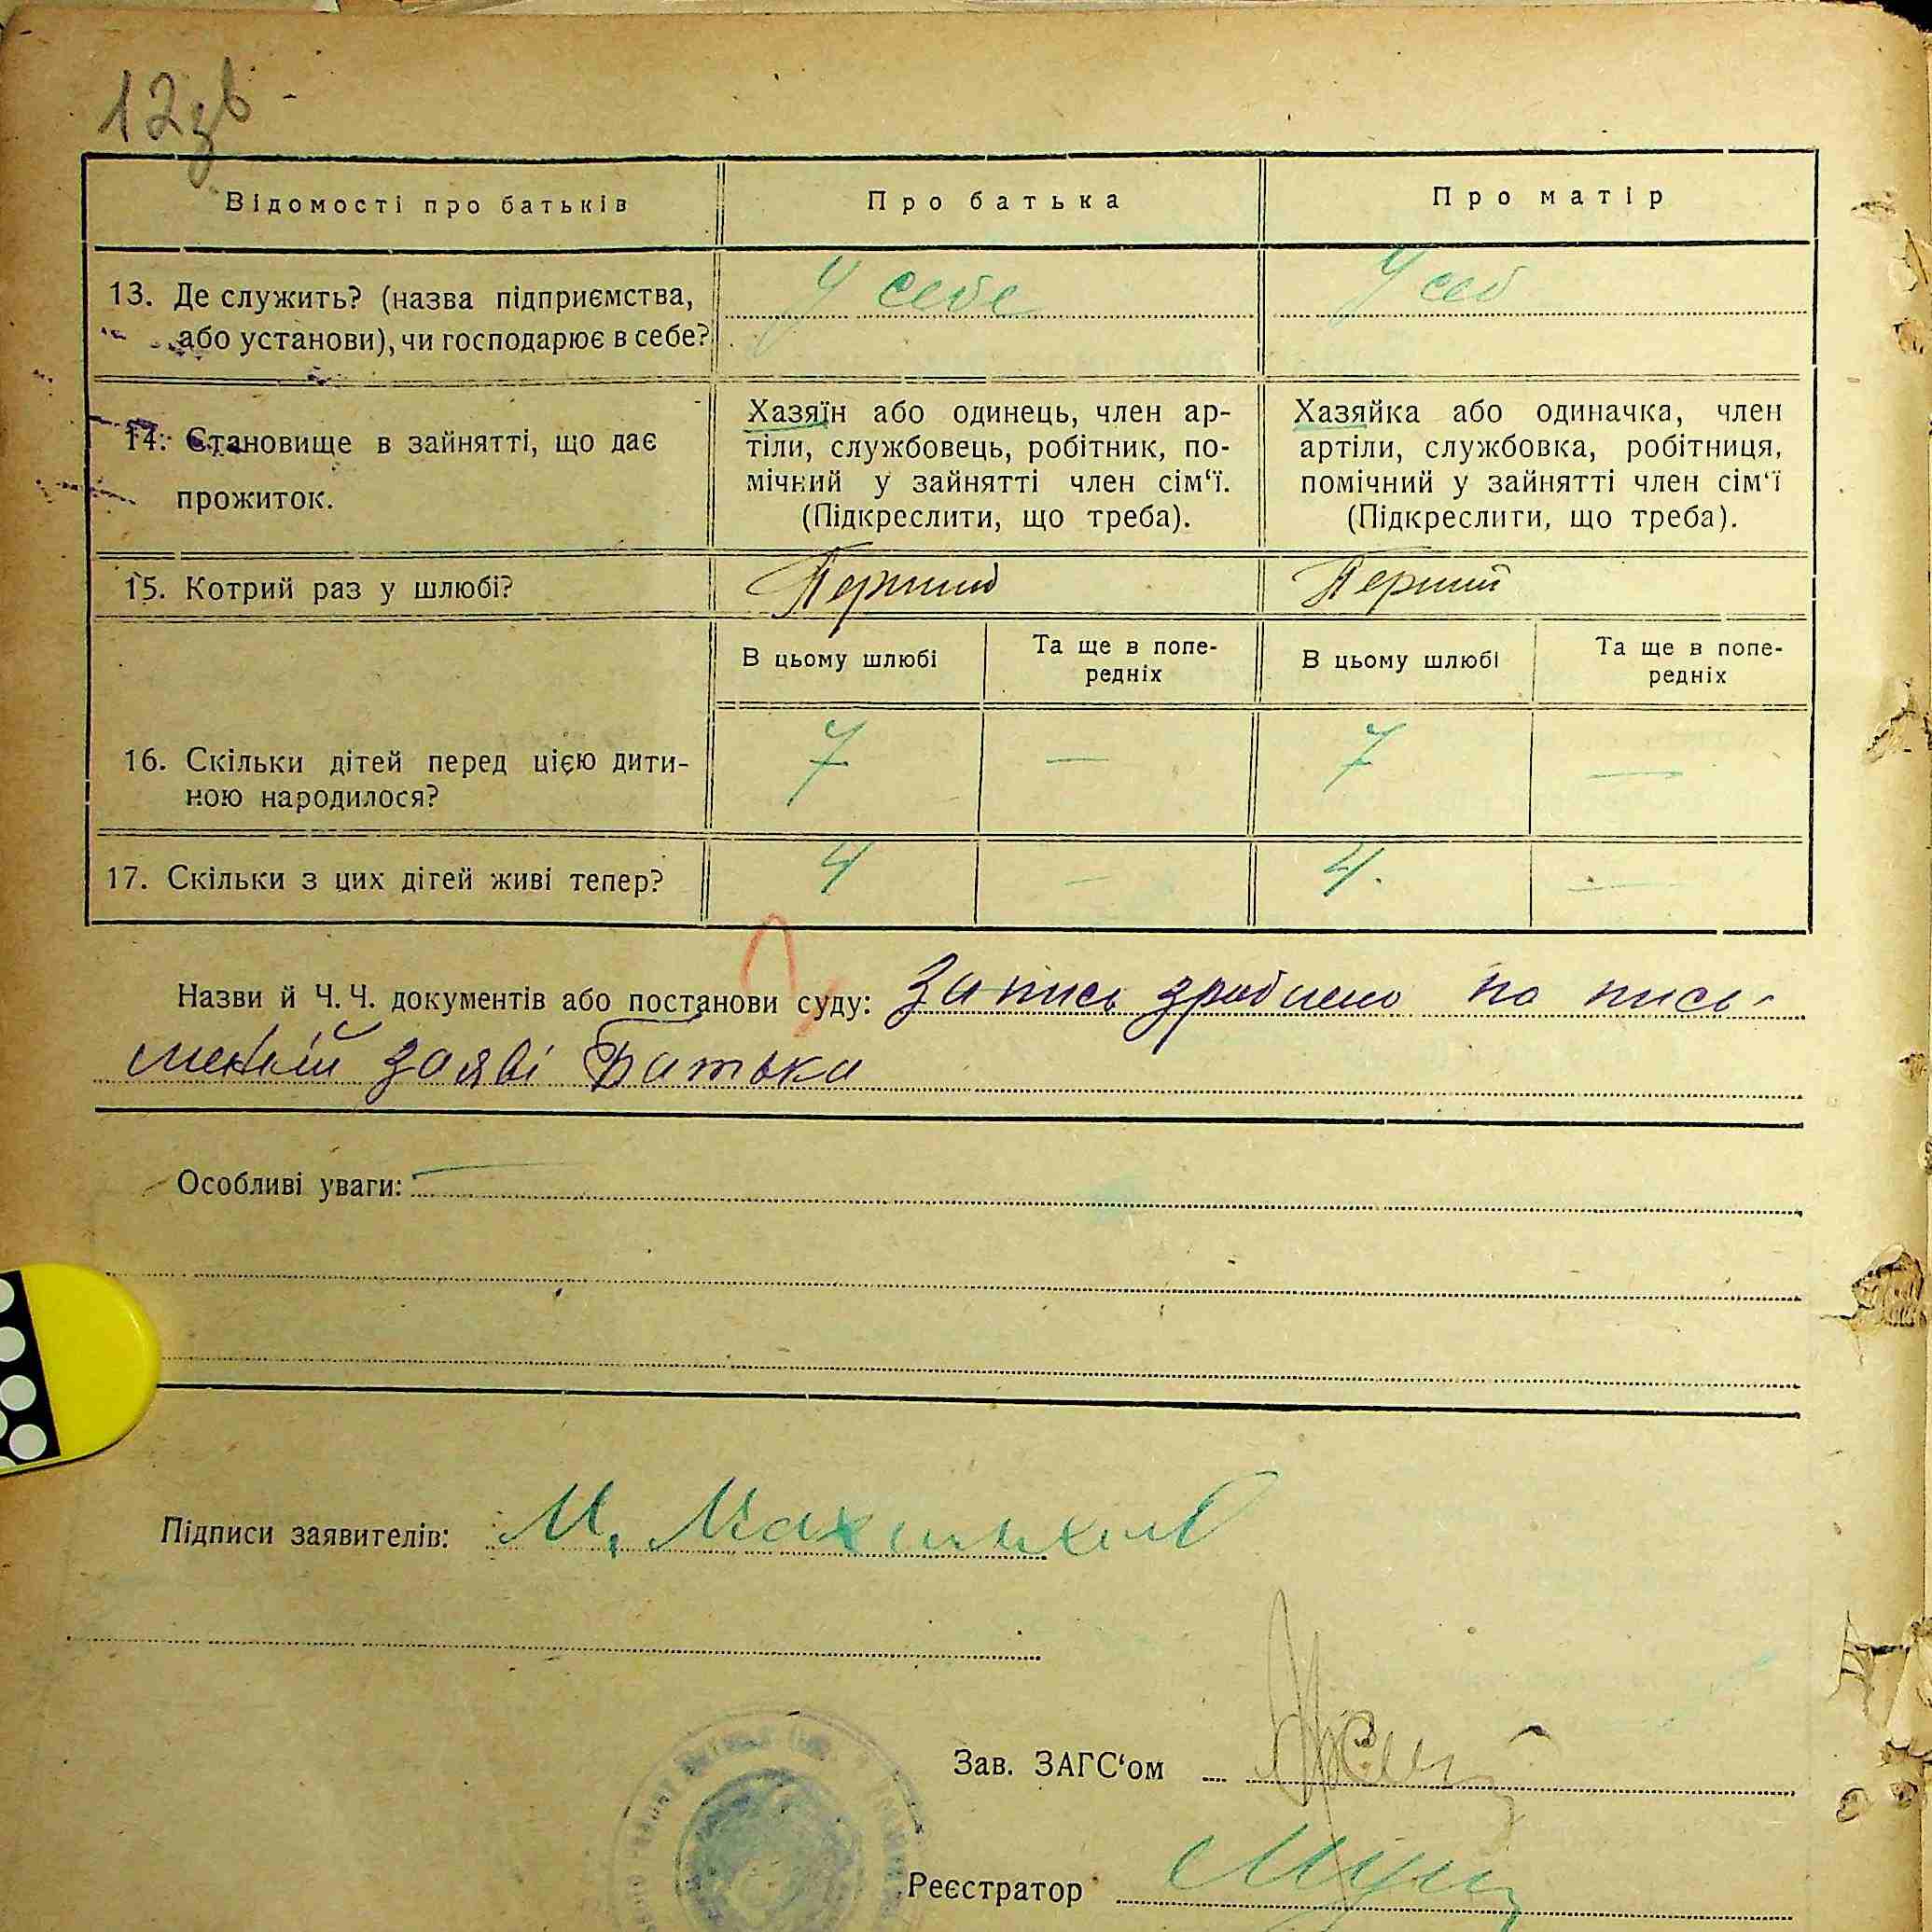 12зв
Відомості про батьків
Про батька
Про матір
13. Де служить? (назва підприємства,
або установи), чи господарює в себе?
У себе
У себ
14. Становище в зайнятті, що дає
прожиток.
Хазяїн або одинець, член ар-
тіли, службовець, робітник, по-
мічний у зайнятті член сім‘ї.
(Підкреслити, що треба).
Хазяйка або одиначка, член
артіли, службовка, робітниця,
помічний у зайнятті член сім‘ї
(Підкреслити, що треба).
15. Котрий раз у шлюбі?
Перший
Перший
В цьому шлюбі
Та ще в попе-
редніх
В цьому шлюбі
Та ще в попе-
редніх
16. Скільки дітей перед цією дити-
ною народилося?
7
—
7
—
17. Скільки з цих дітей живі тепер?
4
—
4.
—
Назви й Ч. Ч. документів або постанови суду: Запись зроблено по пись-
менній заяві Батька
Особливі уваги:
Підписи заявителів: М.
Зав. ЗАГС‘ом
Реєстратор